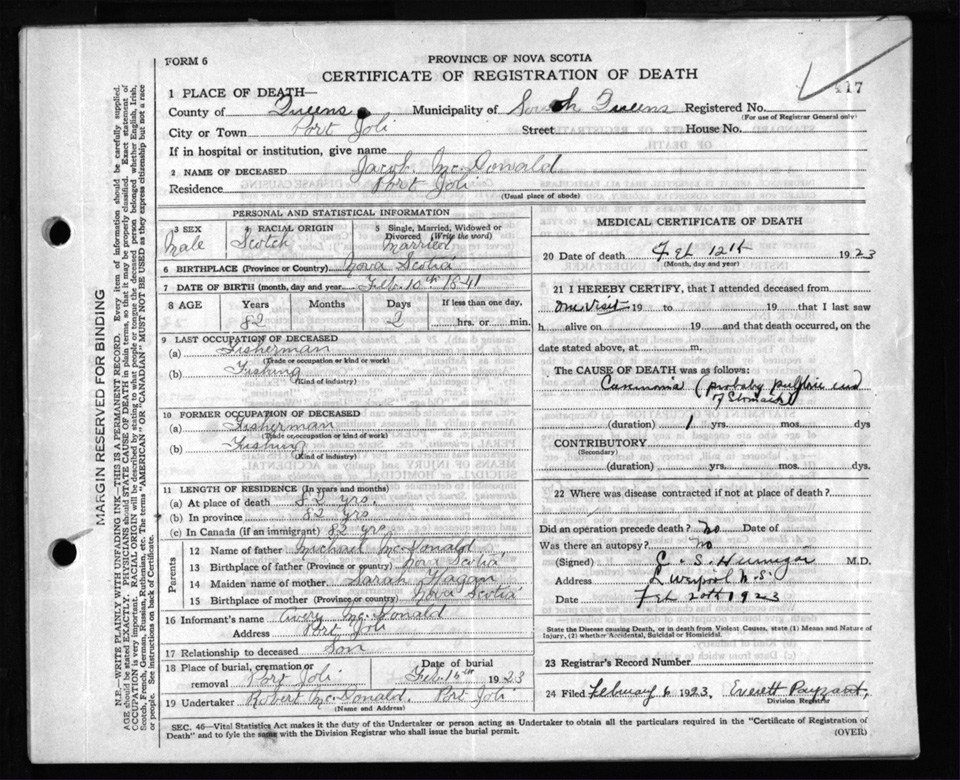 FORM 6
PROVINCE OF NOVA SCOTIA
CERTIFICATE OF REGISTRATION OF DEATH
417
1 PLACE OF DEATH—
County of Queens Municipality of South Queens Registered No.
(For use of Registrar General only)
City or Town Port Joli Street House No.
If in hospital or institution, give name
2 NAME OF DECEASED Jacob McDonald
Residence Port Joli
(Usual place of abode)
PERSONAL AND STATISTICAL INFORMATION
3 SEX Male
4 RACIAL ORIGIN Scotch
5 Single, Married, Widowed or Divorced (Write the word) Married
6 BIRTHPLACE (Province or Country) Nova Scotia
7 DATE OF BIRTH (month, day and year) Feb. 10th 1841
8 AGE Years Months Days If less than one day,
82 2 hrs. or min.
9 LAST OCCUPATION OF DECEASED
(a) Fisherman
(Trade or occupation or kind or work)
(b) Fishing
(Kind of industry)
10 FORMER OCCUPATION OF DECEASED
(a) Fisherman
(Trade or occupation or kind of work)
(b) Fishing
(Kind of industry)
11 LENGTH OF RESIDENCE (In years and months)
(a) At place of death 82 yrs.
(b) In province 82 yrs
(c) In Canada (if an immigrant) 82 yrs
Parents
12 Name of father Michael McDonald
13 Birthplace of father (Province or country) Nova Scotia
14 Maiden name of mother Sarah Hagan
15 Birthplace of mother (Province or country) Nova Scotia
16 Informant's name Avery McDonald
Address Port Joli
17 Relationship to deceased Son
18 Place of burial, cremation or removal Port Joli Date of burial Feb. 16th 1923
19 Undertaker Robert McDonald. Port Joli
(Name and Address)
MEDICAL CERTIFICATE OF DEATH
20 Date of death Feb 12th 1923
(Month, day and year)
21 I HEREBY CERTIFY, that I attended deceased from
One visit 19 to 19 that I last saw
h alive on 19 and that death occurred, on
date stated above, at m.
The CAUSE OF DEATH was as follows:
Carcinoma (probably pyloric end
of Stomach)
(duration) 1 yrs. mos. dys
CONTRIBUTORY
(Secondary)
(duration) yrs. mos. dys.
22 Where was disease contracted if not at place of death?
Did an operation precede death? no Date of
Was there an autopsy? no
(Signed) M.D.
Address Liverpool N.S.
Date Feb 20th 1923
State the Disease causing Death, or in death from Violent Causes, state (1) Means and Nature of
Injury, (2) whether Accidental, Suicidal or Homicidal.
23 Registrar's Record Number
24 Filed February 6 1923, Everett Payzant,
Division Registrar
SEC. 46—Vital Statistics Act makes it the duty of the Undertaker or person acting as Undertaker to obtain all the particulars required in the "Certificate of Registration of
Death" and to fyle the same with the Division Registrar who shall issue the burial permit. (OVER)
MARGIN RESERVED FOR BINDING
N.B.—WRITE PLAINLY WITH UNFADING INK—THIS IS A PERMANENT RECORD. Every item of information should be carefully supplied.
AGE should be stated EXACTLY. PHYSICIANS should STATE CAUSE OF DEATH in plain terms, so that it may be properly classified. Exact statement of
OCCUPATION is very important. RACIAL ORIGIN will be described by stating to what people or tongue the deceased person belonged whether English, Irish,
Scotch, French, German, Russian, Ruthenian, etc. The terms "AMERICAN" OR "CANADIAN" MUST NOT BE USED as they express citizenship but not a race
or people. See instructions on back of Certificate.